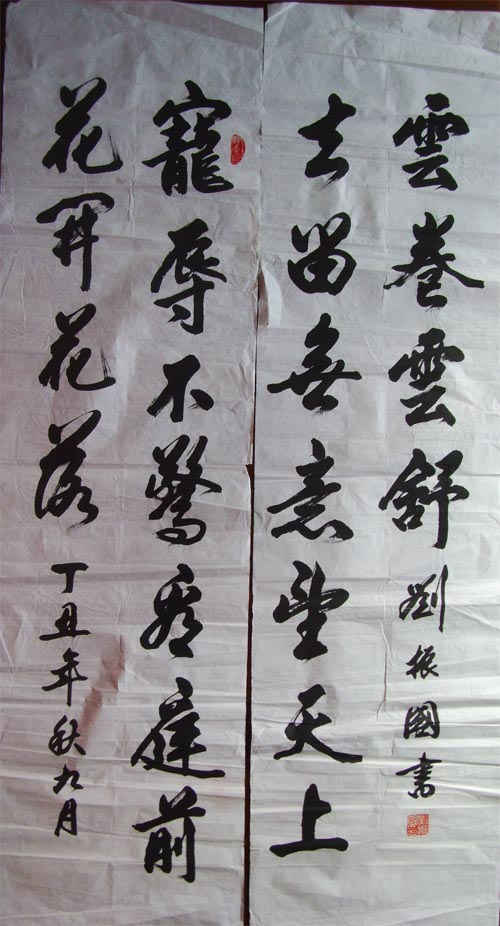 寵辱不驚看庭前
花開花落
丁丑年秋九月
去留無意望天上
雲卷雲舒
劉振國書